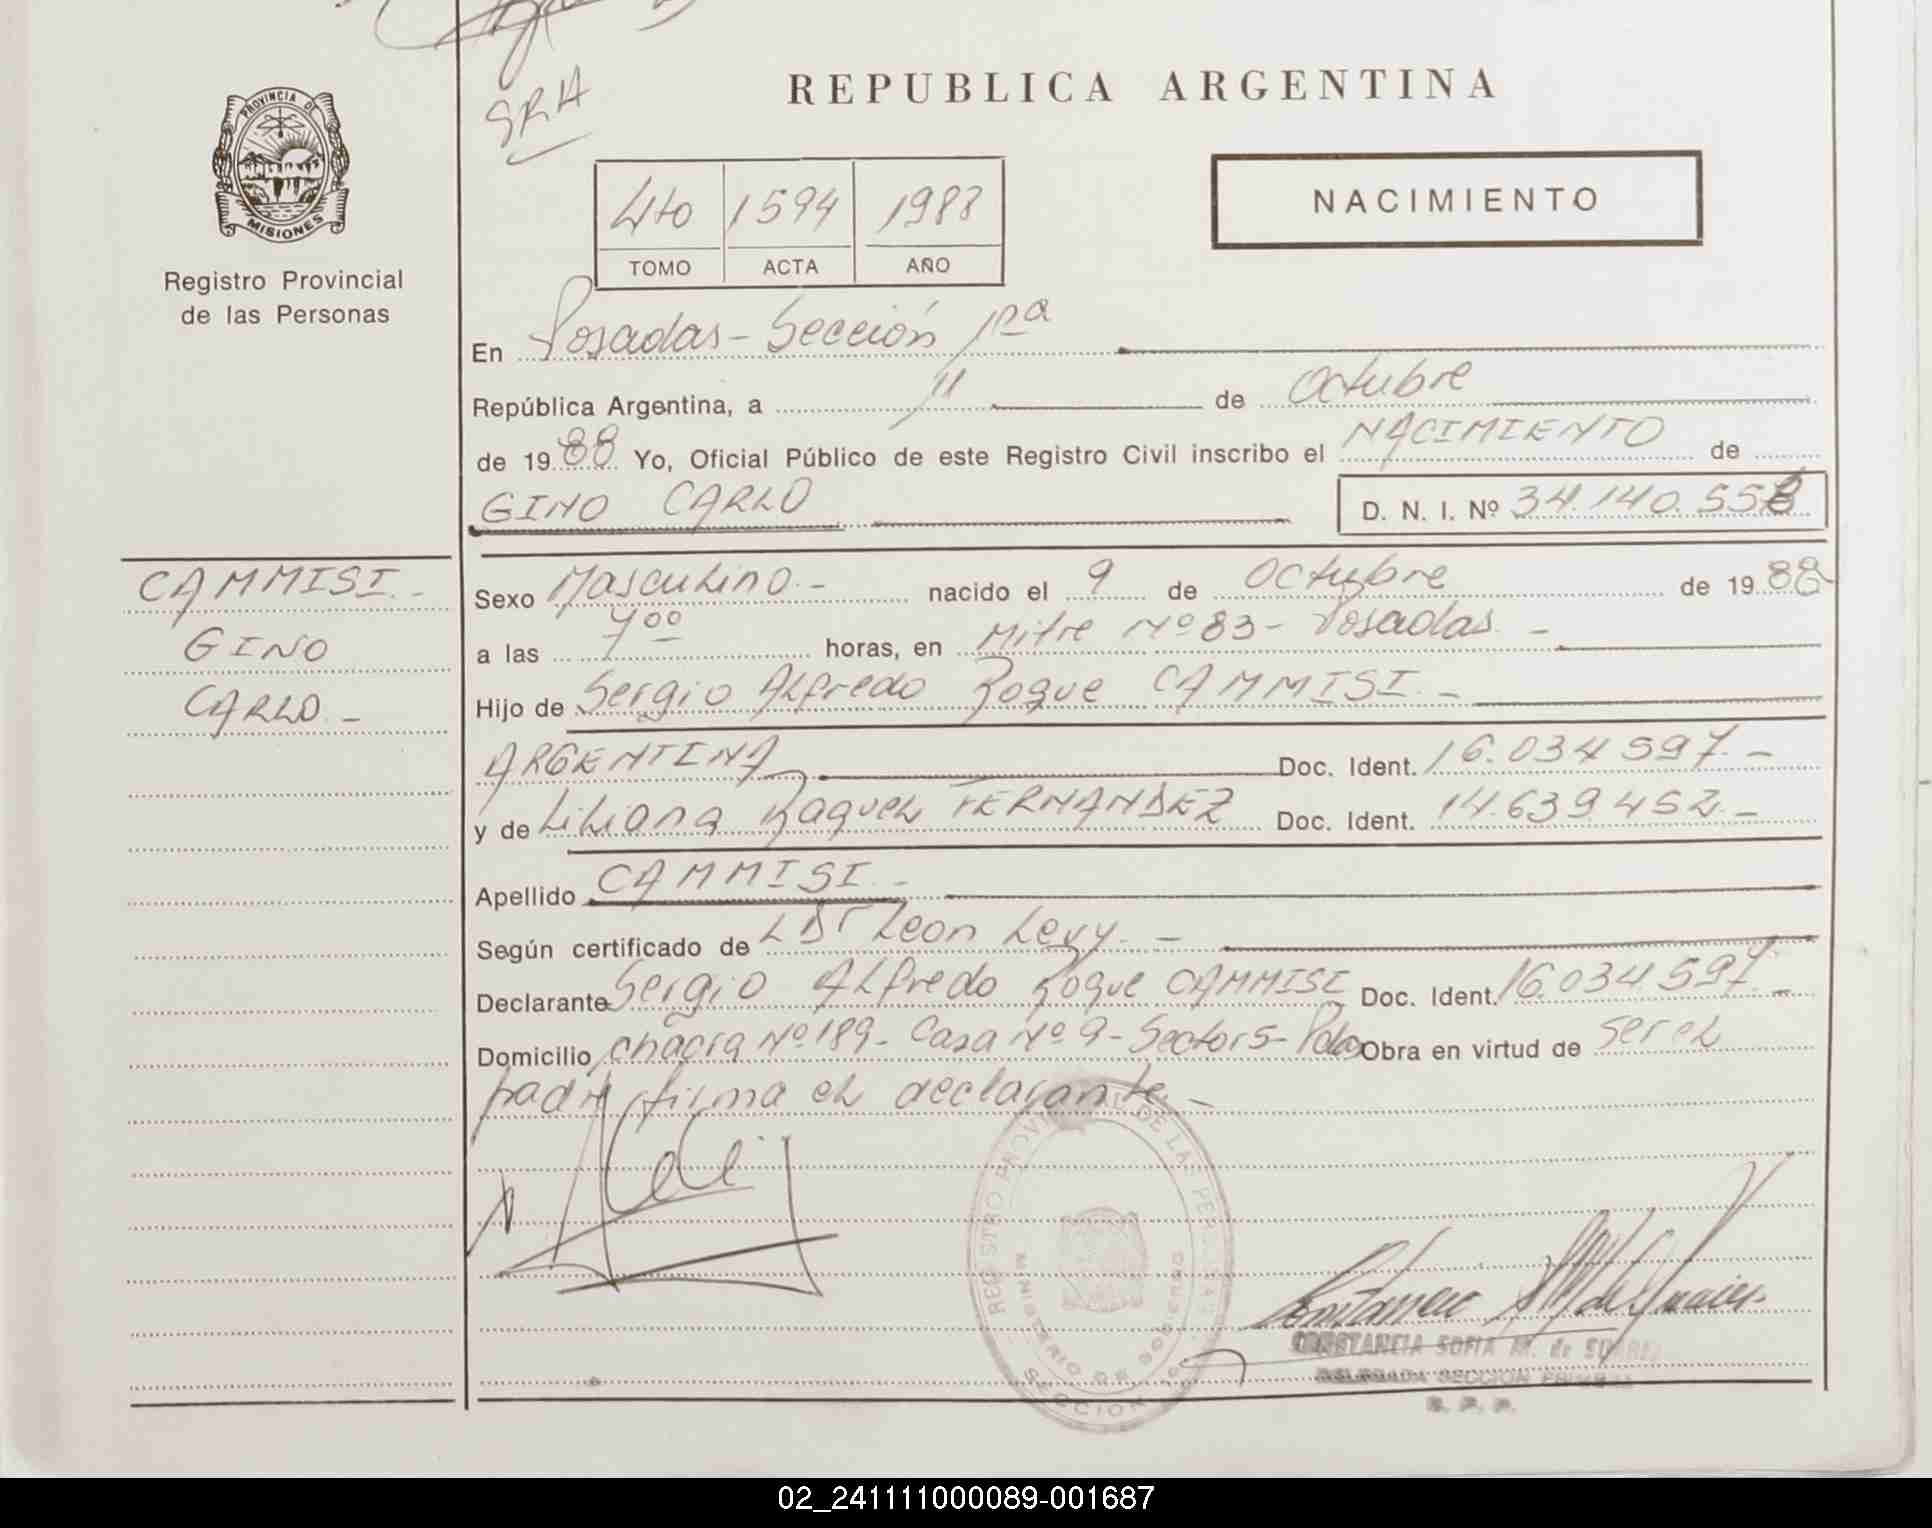 SRA
REPUBLICA ARGENTINA
PROVINCIA DE
MISIONES
Registro Provincial
de las Personas
4to 1594 1988
TOMO ACTA AÑO
NACIMIENTO
En Posadas - Sección 1ra
República Argentina, a 11 de Octubre
de 1988 Yo, Oficial Público de este Registro Civil inscribo el NACIMIENTO de
GINO CARLO D. N. I. Nº 34.140.558
CAMMISI.-
GINO
CARLO.-
Sexo Masculino.- nacido el 9 de Octubre de 1988
a las 7oo horas, en Mitre Nº 83 - Posadas.-
Hijo de Sergio Alfredo Roque CAMMISI.-
ARGENTINA Doc. Ident. 16.034.597.-
y de Liliana Raquel FERNANDEZ Doc. Ident. 14.639.452.-
Apellido CAMMISI.-
Según certificado de L Dr Leon Levy.-
Declarante Sergio Alfredo Roque CAMMISI Doc. Ident. 16.034.597.-
Domicilio chacra Nº 189 - Casa Nº 9 - Sector 5 - Pdas Obra en virtud de ser el
padre firma el declarante.-
REGISTRO PROVINCIAL DE LAS PERSONAS
MINISTERIO DE GOBIERNO
SECCION 1ra
CONSTANCIA SOFIA M. de SUAREZ
DELEGADA SECCION PRIMERA
R. P. P.
02_241111000089-001687